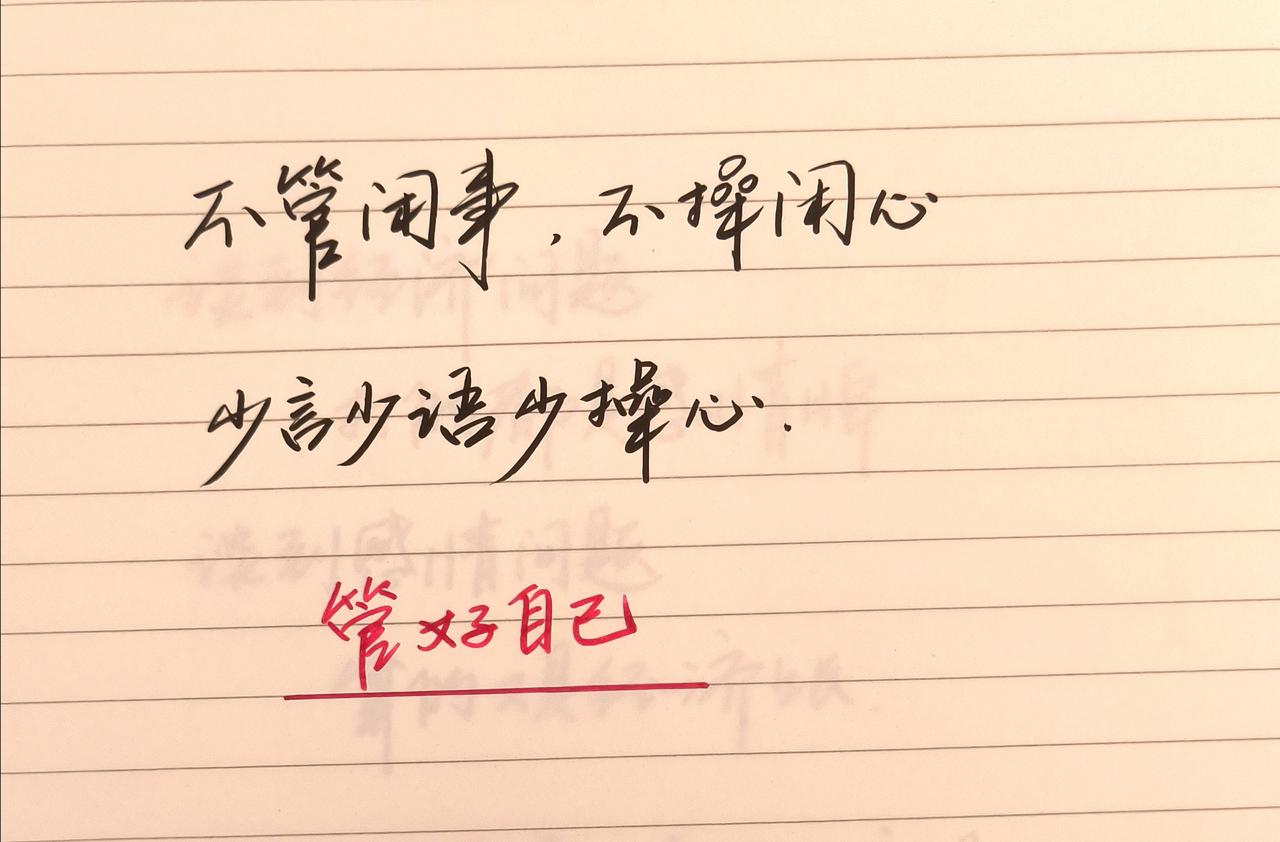 不管闲事,不操闲心
少言少语少操心.
管好自己